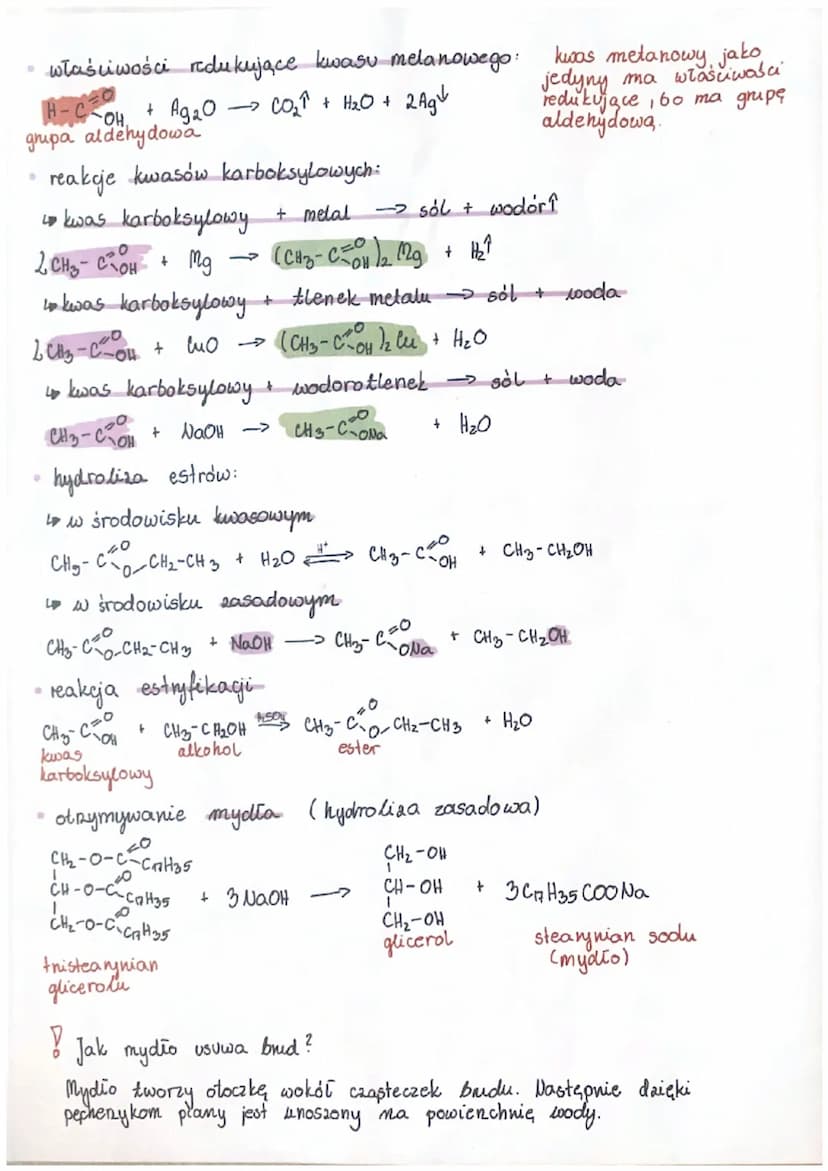 • właściwości redukujące kwasu metanowego:
kwas metanowy jako
jedyny ma właściwości
redukujące, bo ma grupę
aldehydową.
H-C=O OH + Ag2O → CO2↑ + H2O + 2Ag↓
grupa aldehydowa
• reakcje kwasów karboksylowych:
↳ kwas karboksylowy + metal → sól + wodór↑
2CH3-C=O OH + Mg → (CH3-C=O OH)2 Mg + H2↑
↳ kwas karboksylowy + tlenek metalu → sól + woda
2CH3-C=O OH + CuO → (CH3-C=O OH)2 Cu + H2O
↳ kwas karboksylowy + wodorotlenek → sól + woda
CH3-C=O OH + NaOH → CH3-C=O ONa + H2O
• hydroliza estrów:
↳ w środowisku kwasowym
CH3-C=O O-CH2-CH3 + H2O ⇌ H+ CH3-C=O OH + CH3-CH2OH
↳ w środowisku zasadowym
CH3-C=O O-CH2-CH3 + NaOH → CH3-C=O ONa + CH3-CH2OH
• reakcja estryfikacji
CH3-C=O OH + CH3-CH2OH ⇌ CH3-C=O O-CH2-CH3 + H2O
kwas karboksylowy alkohol ester
• otrzymywanie mydła (hydroliza zasadowa)
CH2-O-C=O C17H35 CH2-OH
CH-O-C=O C17H35 + 3NaOH → CH-OH + 3C17H35COONa
CH2-O-C=O C17H35 CH2-OH
glicerol stearynian sodu
(mydło)
tristearynian
glicerolu
! Jak mydło usuwa brud?
Mydło tworzy otoczkę wokół cząsteczek brudu. Następnie dzięki
pęcherzykom piany jest unoszony na powierzchnię wody.